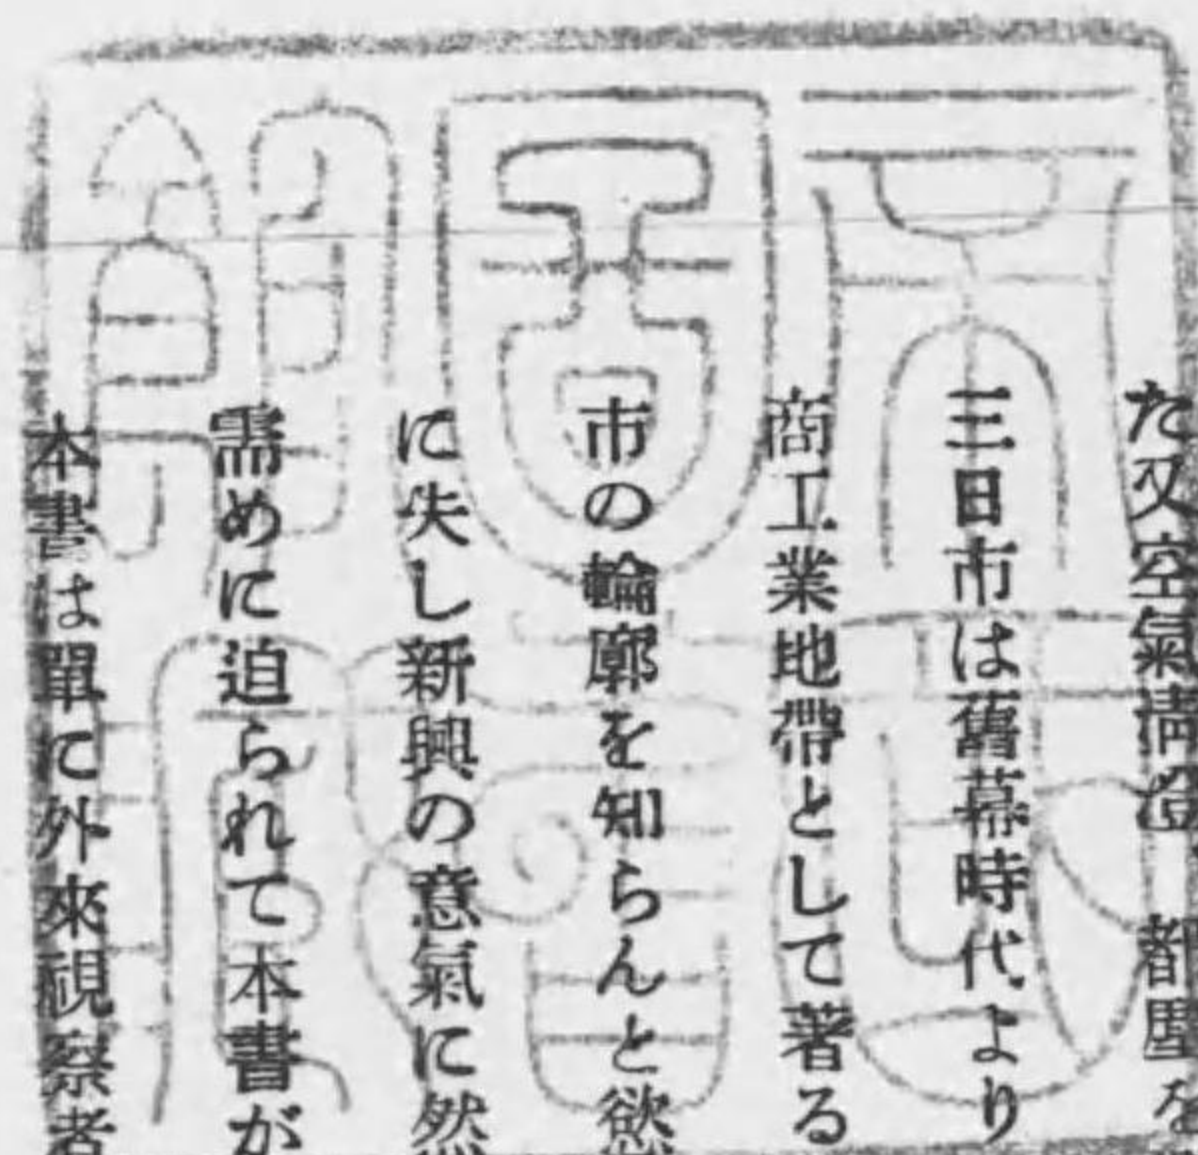 た又空氣清澄、都塵を
三日市は舊幕時代より
商工業地帶として著る
市の輪廓を知らんと慾
に失し新興の意氣に然
需めに迫られて本書が
本書は單に外來視察者